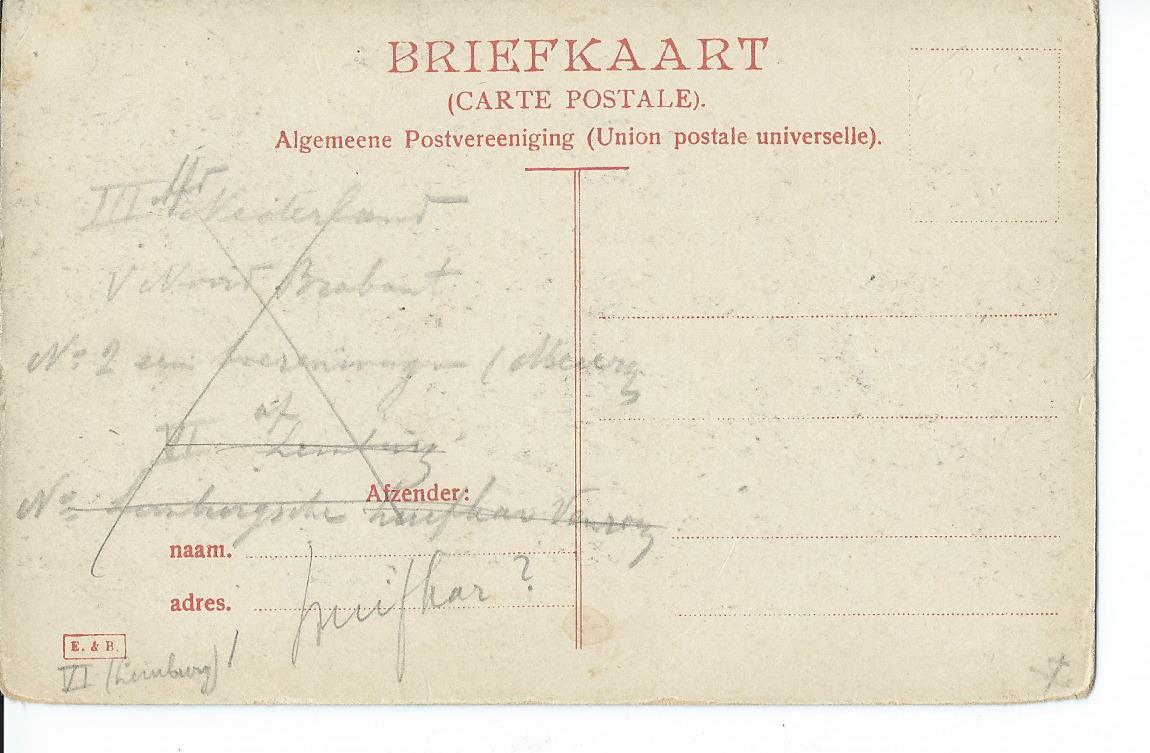 BRIEFKAART
(CARTE POSTALE).
Algemeene Postvereeniging (Union postale universelle).
III Nederland
V Noord Brabant
No. 2 een
VI Limburg
No. Limburgsche Huifkar Venray
Afzender:
naam.
adres.
Huifkar?
E. & B.
VI (Limburg)